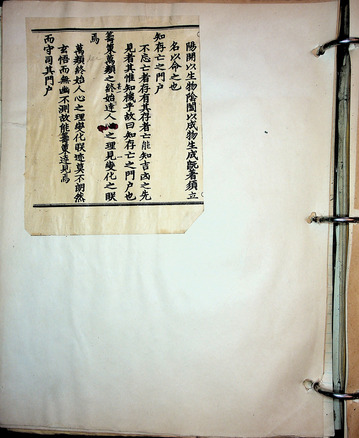 陽開以生物陰闔以成物生成既著須立
名以命之也
知存亡之門戶
不忘亡者存有其存者亡能知吉凶之先
見者其惟知機乎故曰知存亡之門戶也
籌策萬類之終始達人心之理見變化之眹
焉
萬類終始人心之理變化眹迹莫不朗然
玄悟而無幽不測故能籌策達見焉
而守司其門戶